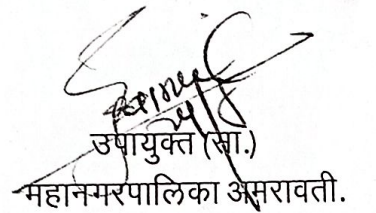 उपायुक्त (सा.)
महानगरपालिका अमरावती.